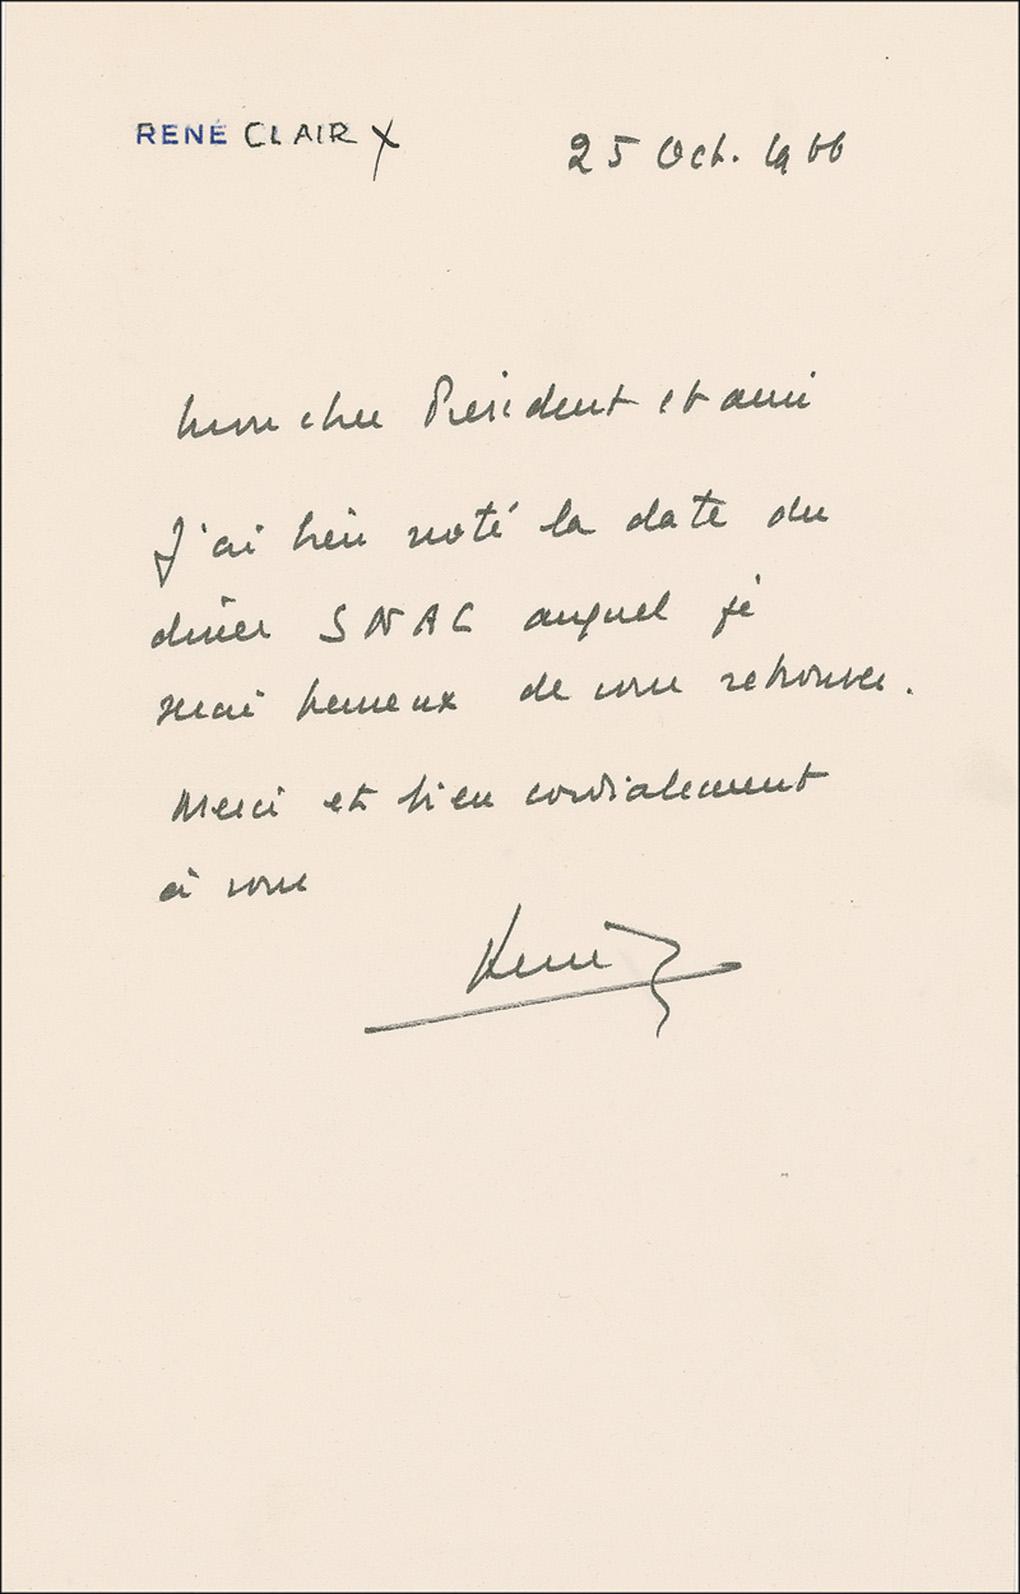 RENÉ CLAIR X
25 Oct. 1966
Mon cher Président et ami
J'ai bien noté la date du
dîner SNAC auquel je
serai heureux de vous retrouver.
Merci et bien cordialement
à vous
René